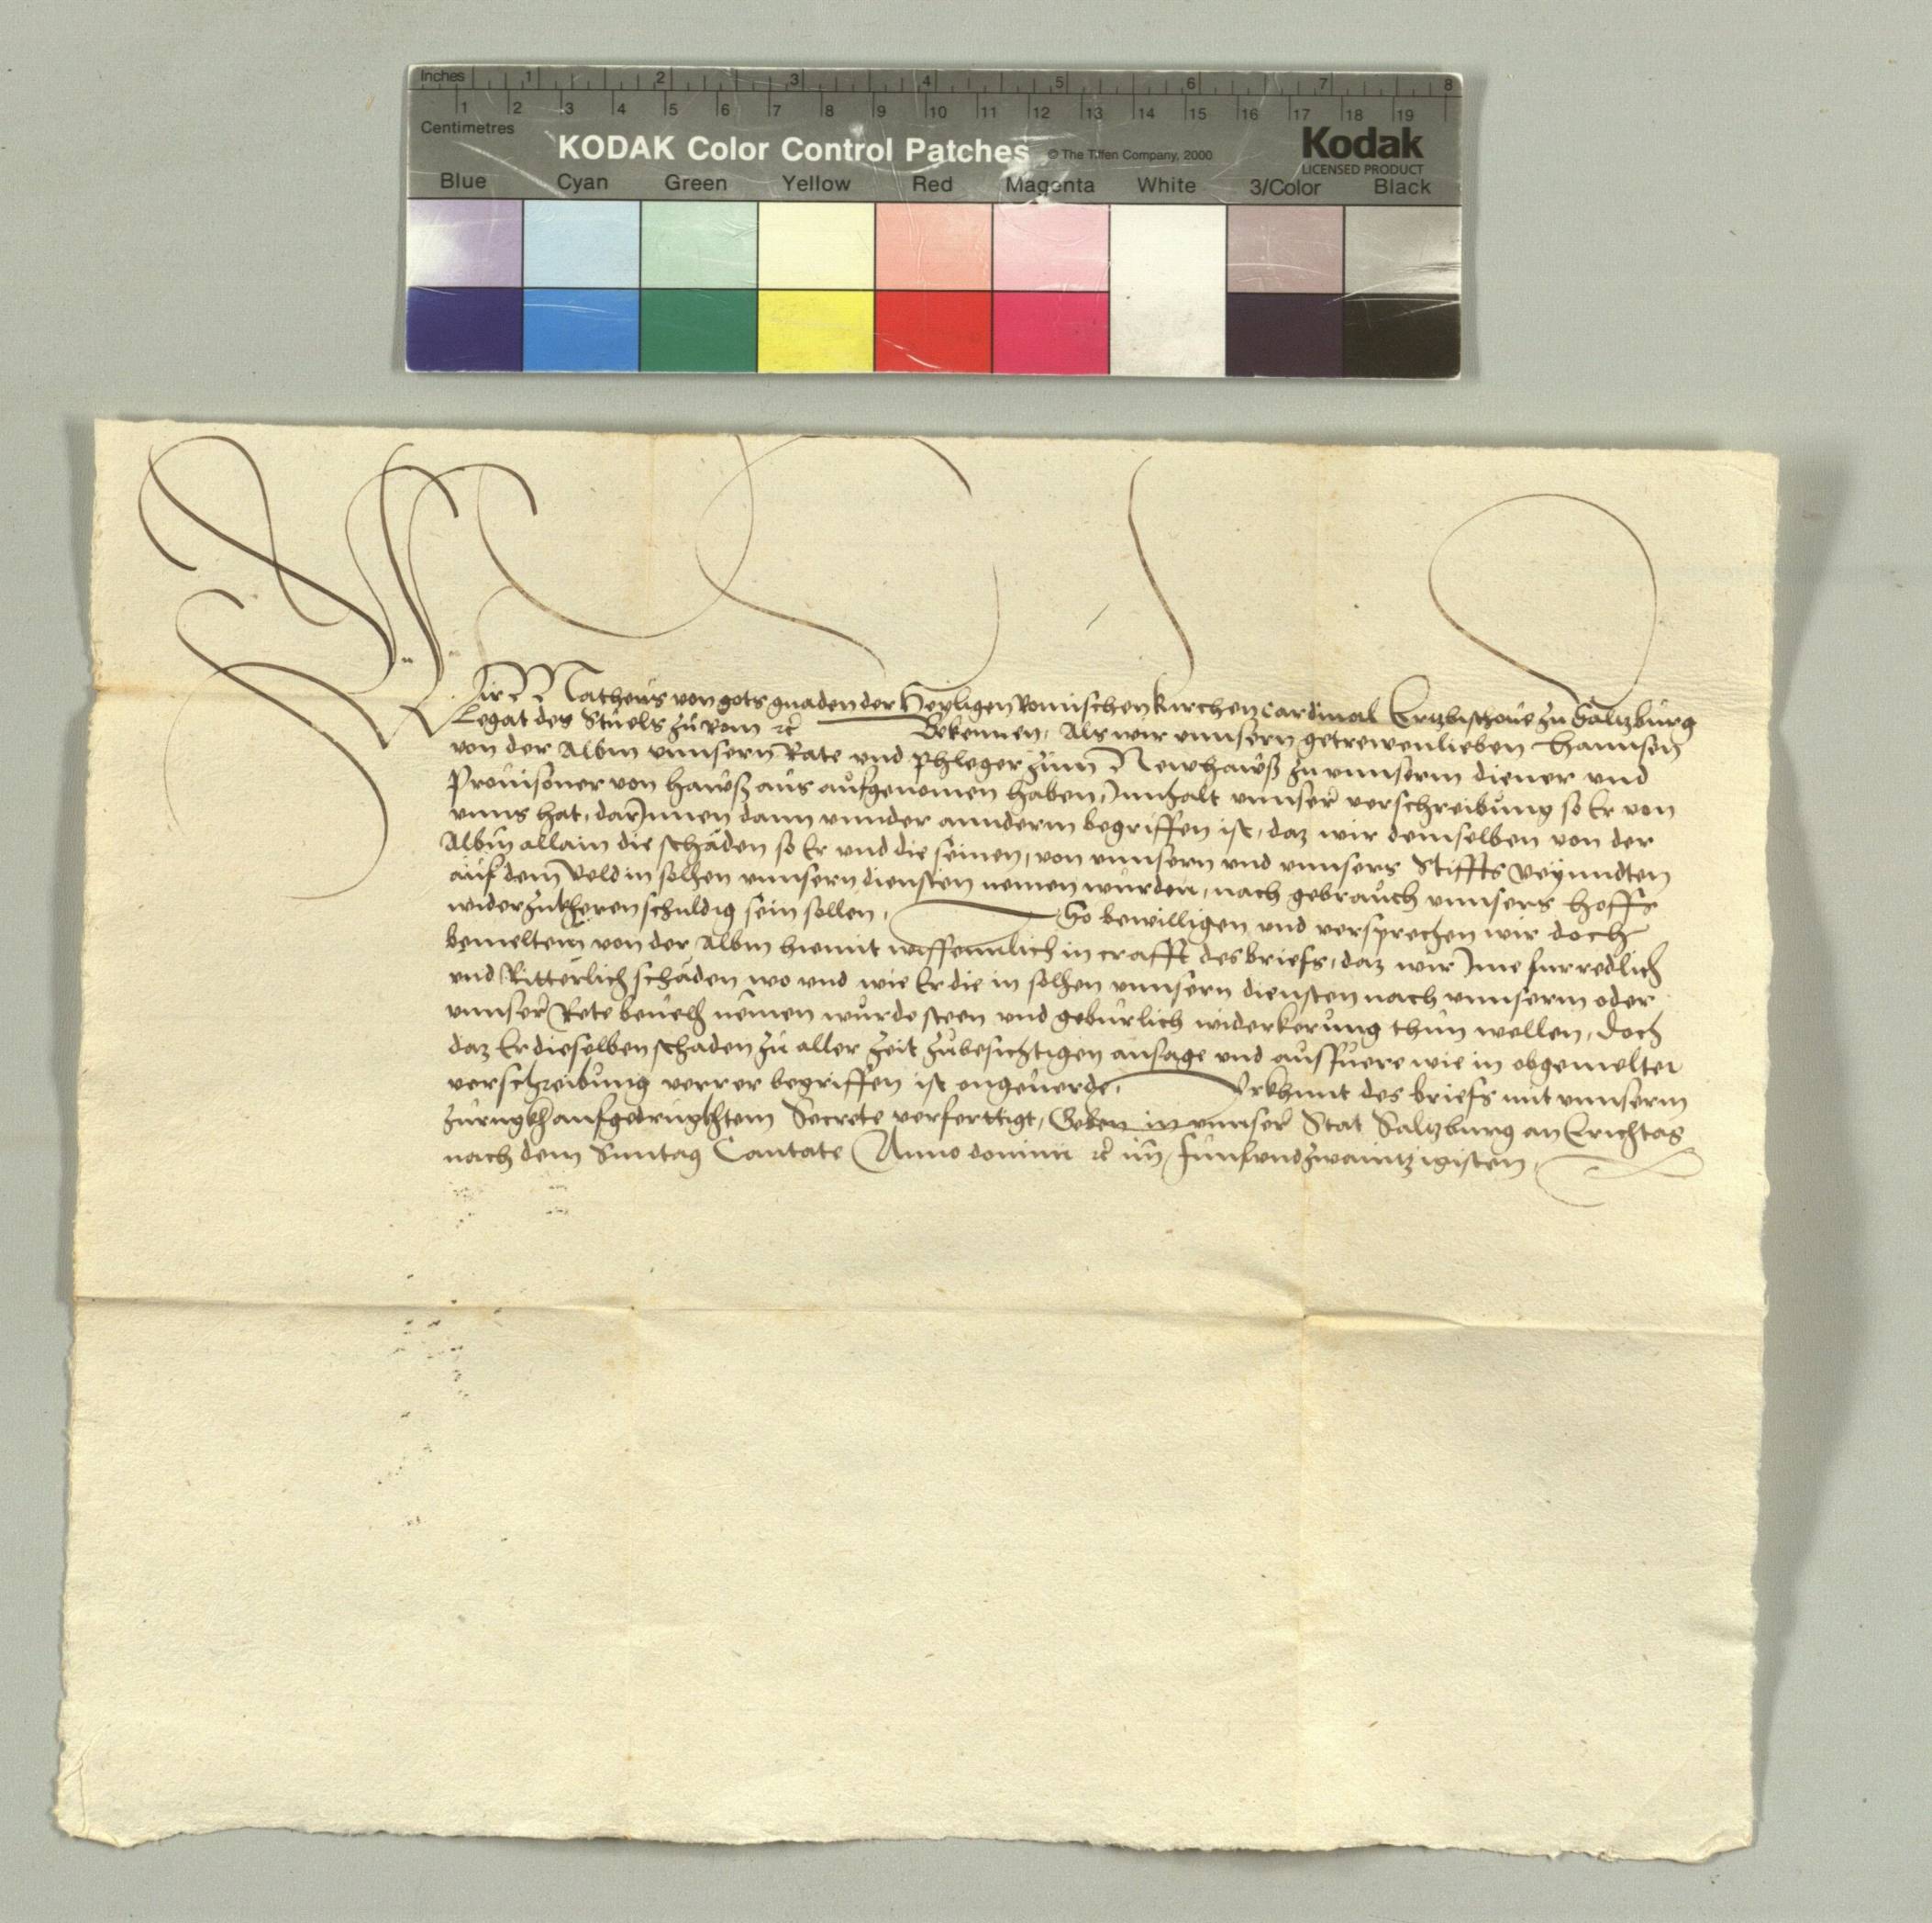 Inches 1 2 3 4 5 6 7 8
1 2 3 4 5 6 7 8 9 10 11 12 13 14 15 16 17 18 19
Centimetres
KODAK Color Control Patches © The Tiffen Company, 2000 Kodak
LICENSED PRODUCT
Blue Cyan Green Yellow Red Magenta White 3/Color Black
Wir Matheus von gots gnaden der Heyligen Romischen kirchen Cardinal Ertzbischoue zu Saltzburg
Legat des Stuels zu Rom ꝛc Bekennen, Als wir vnnsern getrewen lieben Hannsen
von der Albm vnnsern Rate vnd Phleger zum Newhawß zu vnnserm diener vnd
Prouisoner von hawß aus aufgenomen haben, Innhalt vnnser verschreibung so Er von
vnns hat, darInnen dann vnnder annderm begriffen ist, daz wir demselben von der
Albm allain die schäden so Er vnd die seinen, von vnnsern vnd vnnsers Stiffts Veynndten
auf dem Veld in solhen vnnsern diensten nemen wurden, nach gebrauch vnnsers hoffs
widerzukheren schuldig sein sollen, So bewilligen vnd versprechen wir doch
bemeltem von der Albm hiemit wissennlich in crafft des briefs, daz wir Ime fur redlich
vnd Ritterlich schäden wo vnd wie Er die in solhen vnnsern diensten nach vnnserm oder
vnnser Rete beuelh nemen wurde steen vnd geburlich widerkerung thun wellen, doch
daz Er dieselben schäden zu aller zeit zubesichtigen ansage vnd ausfuere wie in obgemelter
verschreibung verrer begriffen ist ongeuerde, Vrkhunt des briefs mit vnnserm
zurugkh aufgedrugkhtem Secrete verferttigt, Geben in vnnser Stat Saltzburg an Erichtag
nach dem Sunntag Cantate Anno domini ꝛc im funfundzwaintzigisten